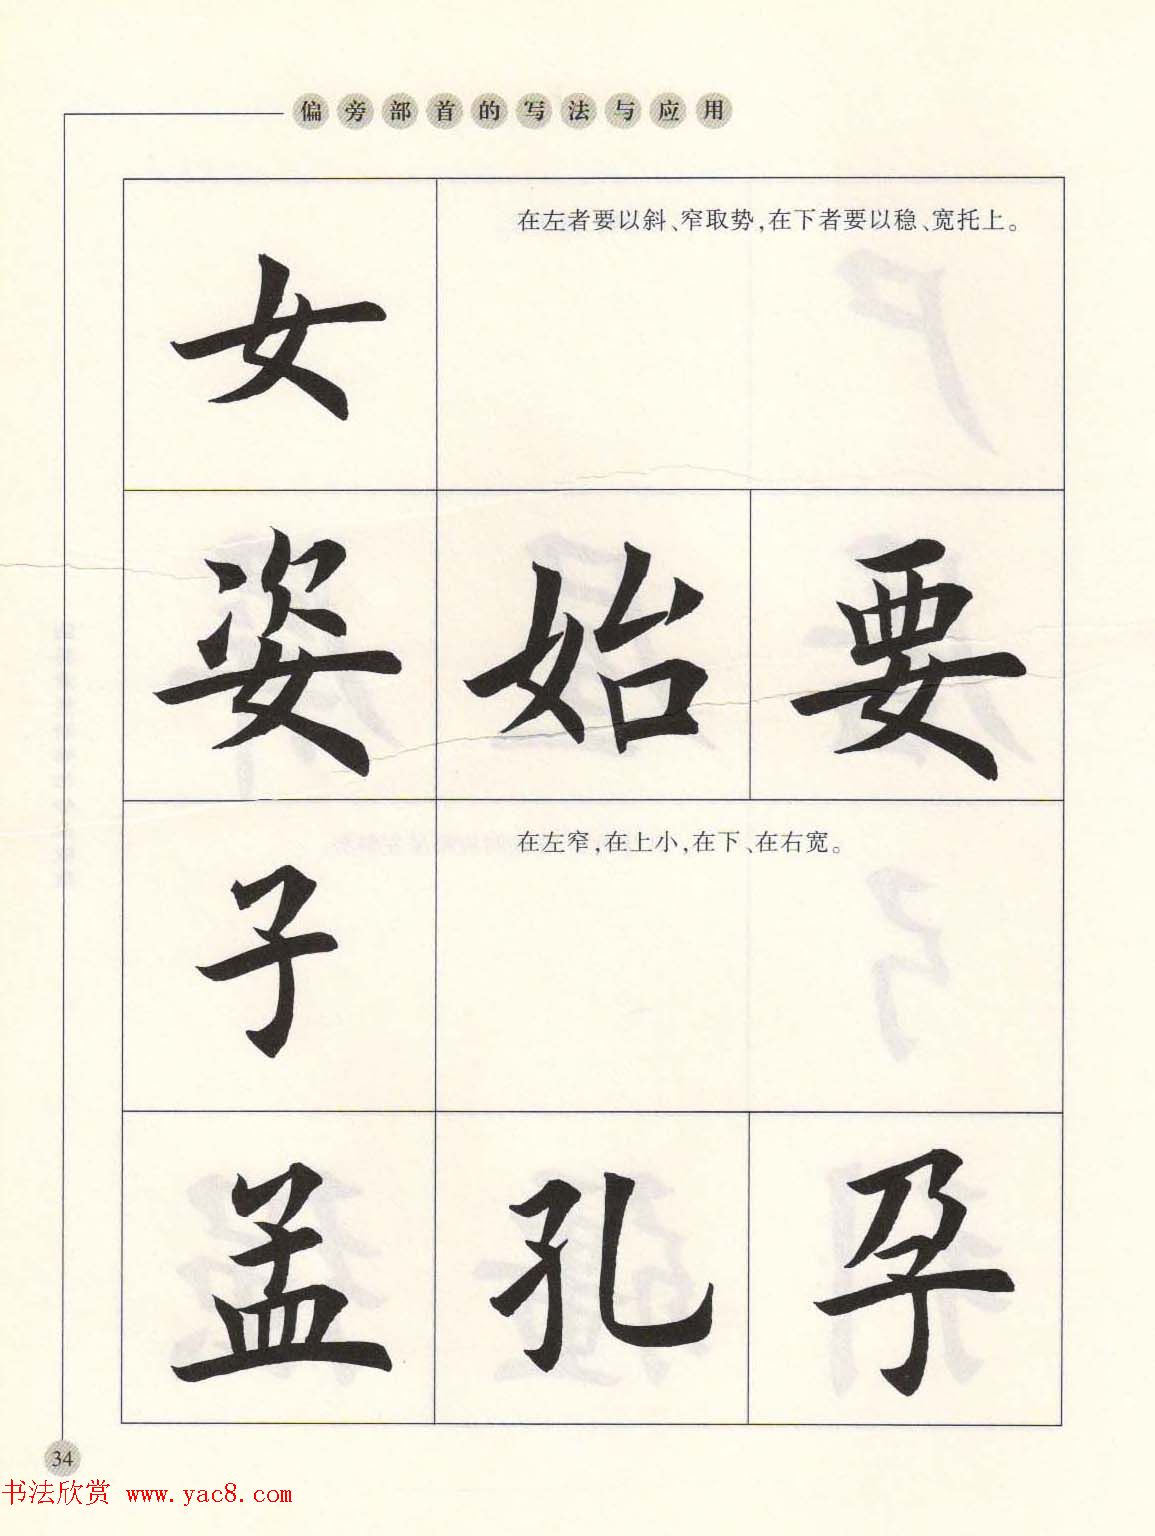 偏旁部首的写法与应用
女
在左者要以斜、窄取势，在下者要以稳、宽托上。
姿 始 要
子
在左窄，在上小，在下、在右宽。
孟 孔 孕
34
书法欣赏 www.yac8.com